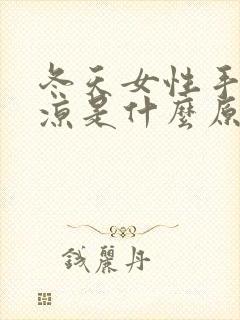 冬天女性手
凉是什麼原
钱麗丹